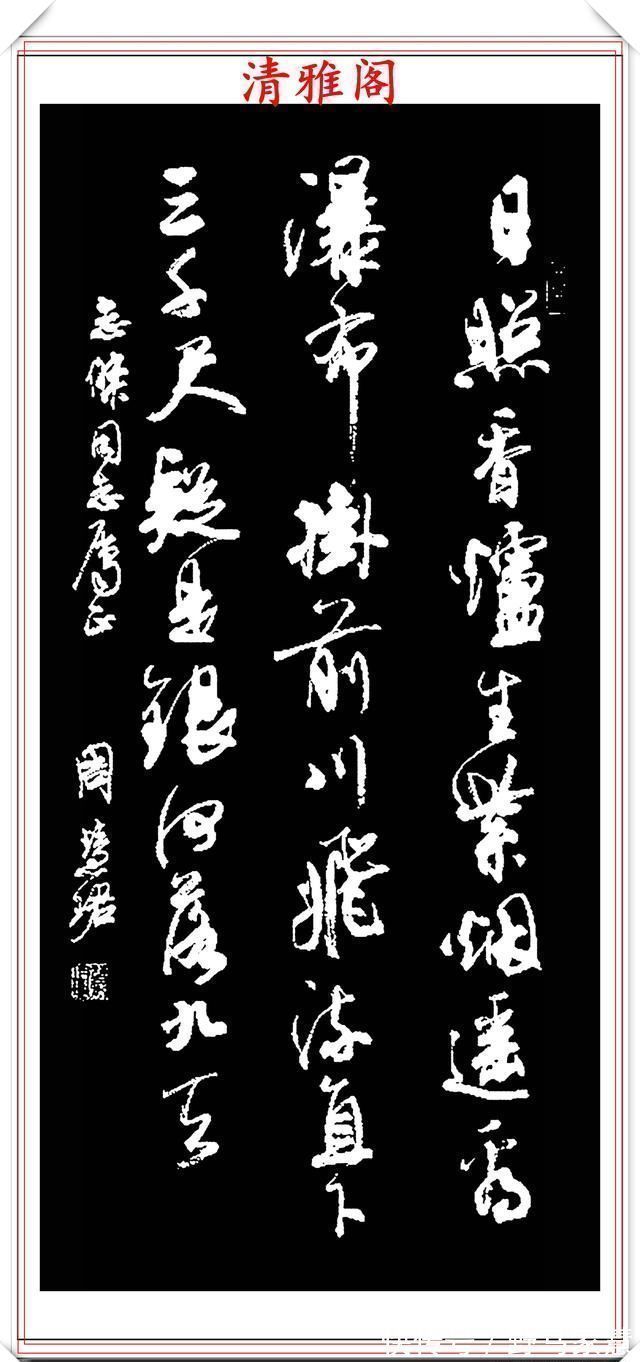 清雅阁
日照香爐生紫烟遥看
瀑布掛前川飛流直下
三千尺疑是銀河落九天
志傑同志属正 周慧珺
快传号 /